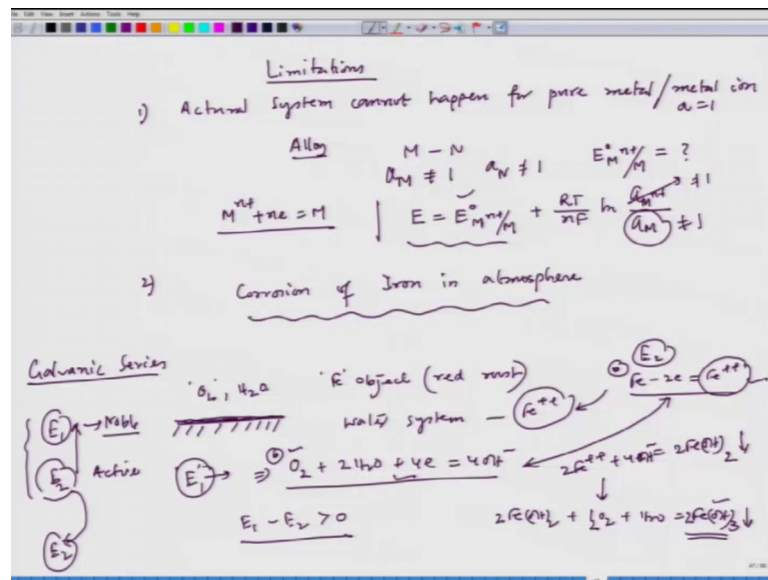 File Edit View Insert Actions Tools Help
Limitations
1) Actual System cannot happen for pure metal/metal ion
a=1
Alloy M – N E°M^n+/M = ?
a_M ≠ 1 a_N ≠ 1
M^n+ + ne = M E = E°M^n+/M + RT/nF ln a_M^n+/a_M ≠ 1
≠ 1
2) Corrosion of Iron in atmosphere
Galvanic Series
E₁ → Noble
E₂ Active
E₂
O₂, H₂O
'E' object (red rust)
water system – Fe^++
E₂
Fe – 2e = Fe^++
E₁ → ⇒ O₂ + 2H₂O + 4e = 4OH⁻
2Fe^++ + 4OH⁻ = 2Fe(OH)₂ ↓
E₁ – E₂ > 0
2Fe(OH)₂ + ½O₂ + H₂O = 2Fe(OH)₃ ↓